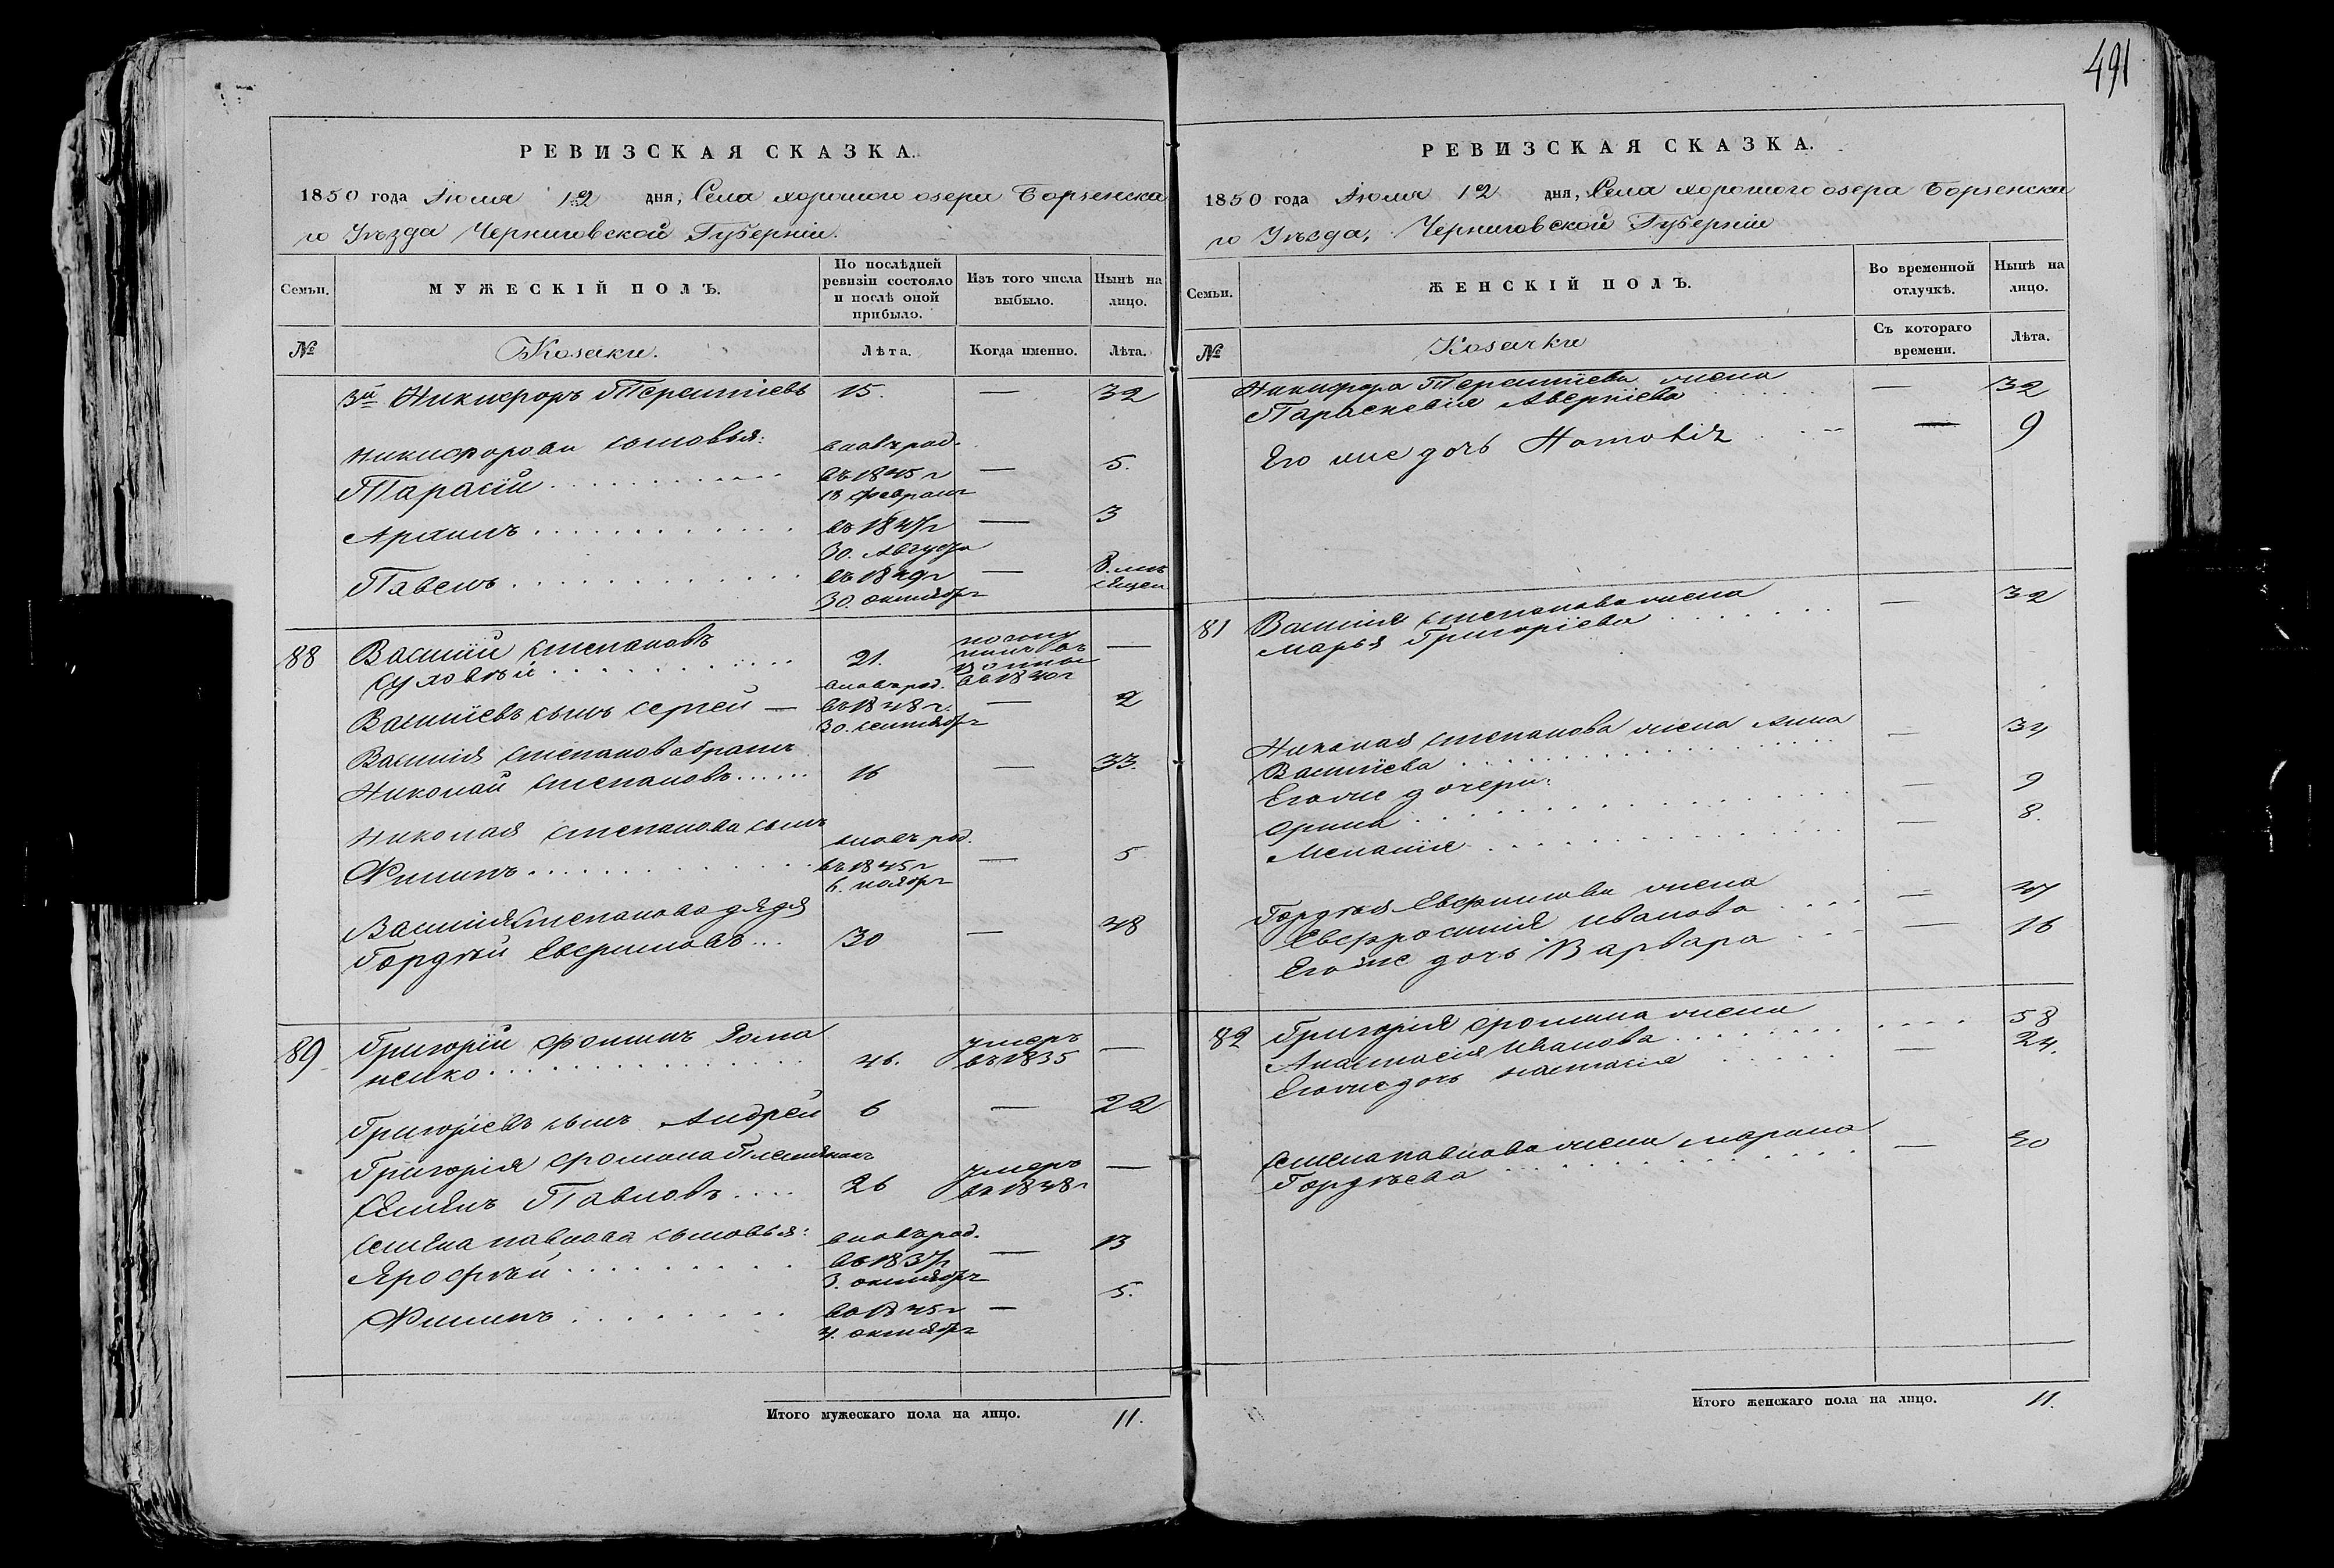 491
РЕВИЗСКАЯ СКАЗКА.
1850 года Июля 12 дня, Села хорошого озера Борзенска
го Уѣзда Черниговской Губерніи.
Семьи.
МУЖЕСКІЙ ПОЛЪ.
По послѣдней ревизіи состояло и послѣ оной прибыло.
Изъ того числа выбыло.
Нынѣ на лицо.
№
Козаки.
Лѣта.
Когда именно.
Лѣта.
3й Никифоръ Терентіевъ 15. — 32
Никифорови сыновья: вновь род.
Тарасій въ 1845 г — 5.
18 февраля
Архипъ въ 1847 г — 3
30. Августа
Павелъ въ 1849 г — 8. мѣ
30. октября сяцел
88 Василій Степановъ
Суховѣй 21. въ 1840 г —
вновь род.
Василіевъ сынъ Сергей — въ 1848 г. — 2
30. сентября
Василія Степанова братъ
Николай Степановъ 16 — 33.
Николая Степанова сынъ вновь род.
Филипъ въ 1845 г — 5
6. ноября
Василия Степанова дядя
Гордѣй Евфимовъ 30 — 48
89 Григорій Фоминъ Рома
ненко 46. умеръ въ 1835 —
Григоріевъ сынъ Андрей 6 — 22
Григорія Фомина Племянникъ
Семенъ Павловъ 26 умеръ въ 1848 г —
Семена павлова сыновья: вновь род.
Ярофѣй въ 1837 г — 13
3. октября
Филипъ во 1845 г — 5.
4. октября
Итого мужескаго пола на лицо. 11.
РЕВИЗСКАЯ СКАЗКА.
1850 года Июля 12 дня, Села хорошого озера Борзенска
го Уѣзда, Черниговской Губерніи
Семьи.
ЖЕНСКІЙ ПОЛЪ.
Во временной отлучкѣ.
Нынѣ на лицо.
№
Козачки
Съ котораго времени.
Лѣта.
Никифора Терентіева жена
Параскевія Аверкіева — 32
Его же дочь Наталія — 9
81 Василія Степанова жена — 32
Марья Григоріева
Николая Степанова жена Анна — 34
Василіева
Его же дочери:
Орина — 9
Меланія — 8.
Гордѣя Евфимова жена
Евфросинія Иванова — 47
Его же дочь Варвара — 16
82 Григорія Фомина жена
Анастасія Иванова 58
Его же дочь настасія — 24.
Семена павлова жена марина — 40
Гордѣева
Итого женскаго пола на лицо. 11.